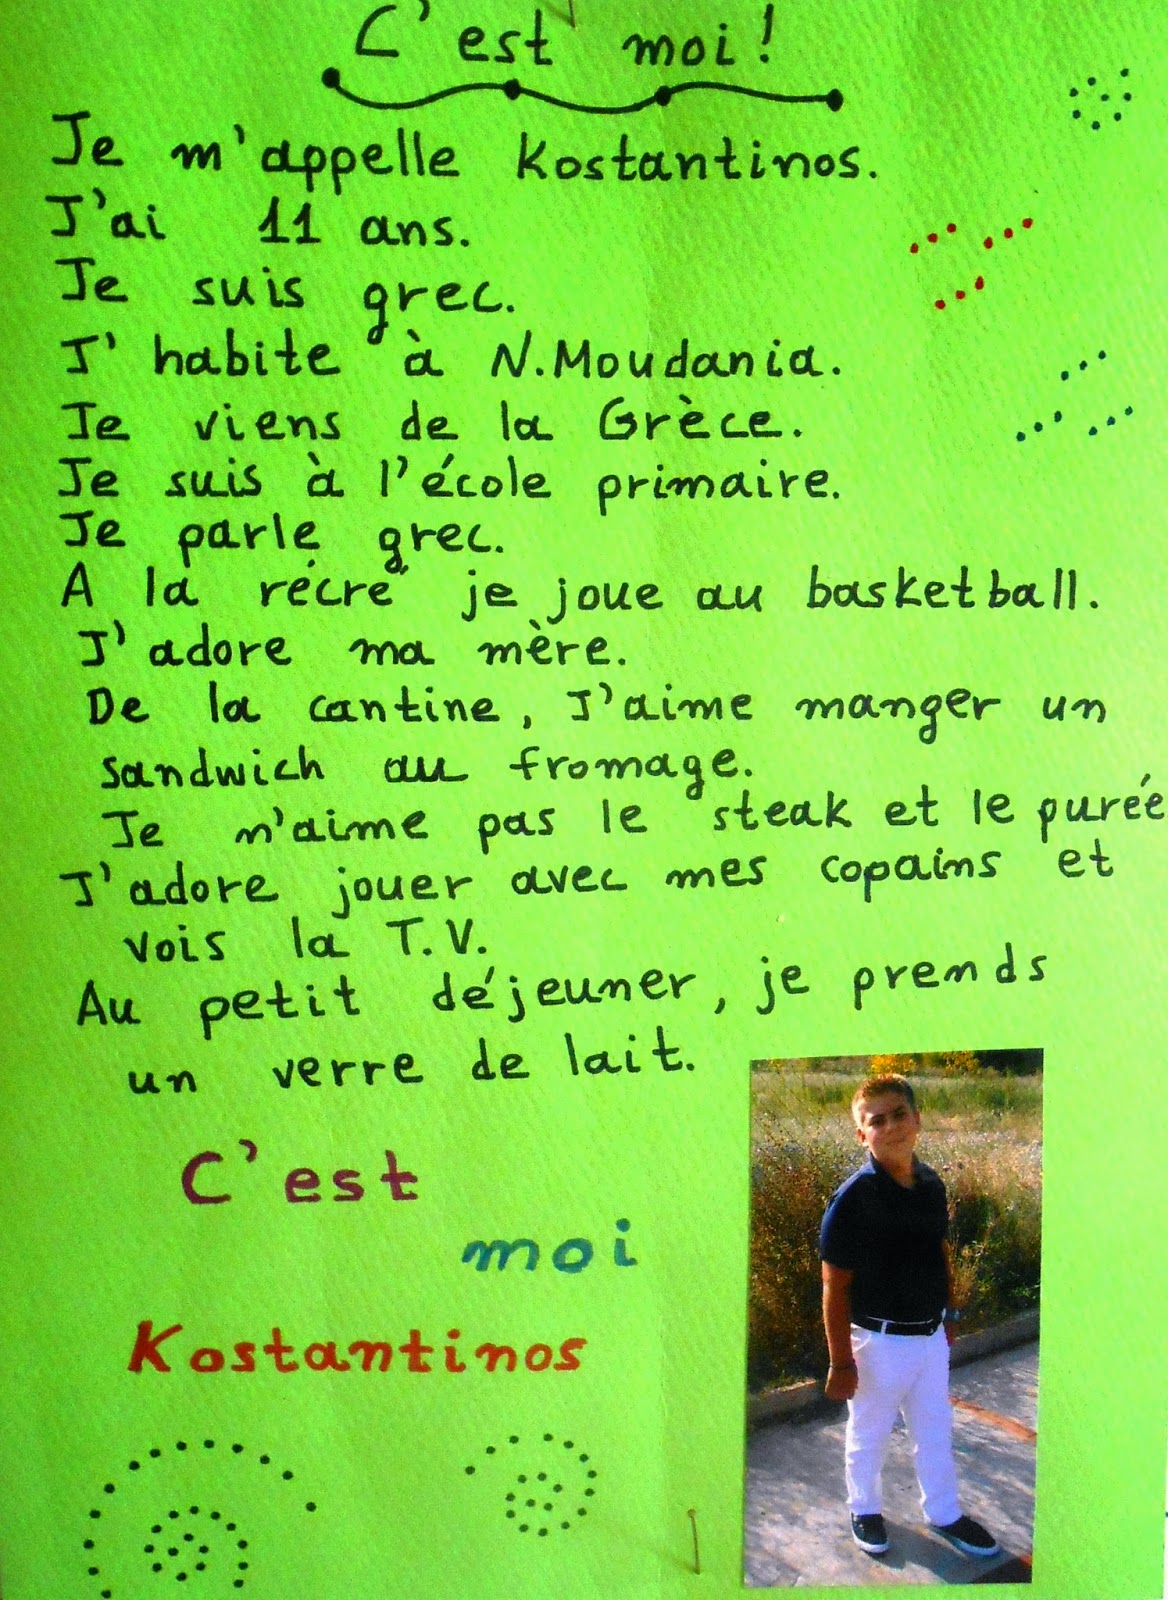 C'est moi!
Je m'appelle Kostantinos.
J'ai 11 ans.
Je suis grec.
J'habite à N.Moudania.
Je viens de la Grèce.
Je suis à l'école primaire.
Je parle grec.
A la récré je joue au basketball.
J'adore ma mère.
De la cantine, J'aime manger un
sandwich au fromage.
Je n'aime pas le steak et le purée
J'adore jouer avec mes copains et
vois la T.V.
Au petit déjeuner, je prends
un verre de lait.
C'est
moi
Kostantinos